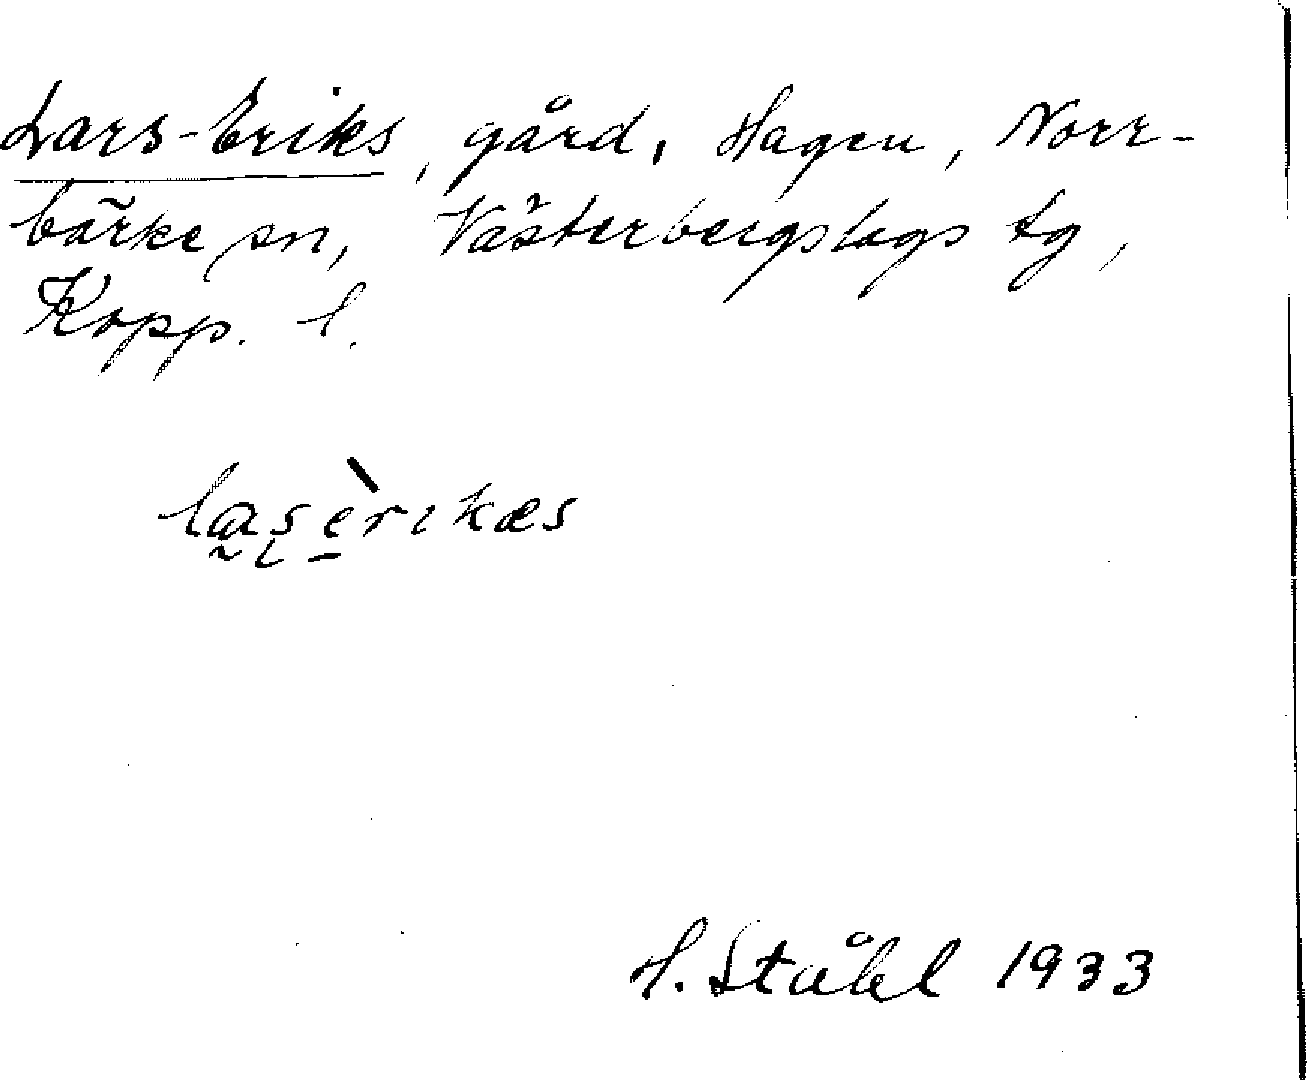 Lars-Eriks, gård, Hagen, Norr-
bärke sn, Västerbergslags tg,
Kopp. l.
lasèrikæs
H. Ståhl 1933